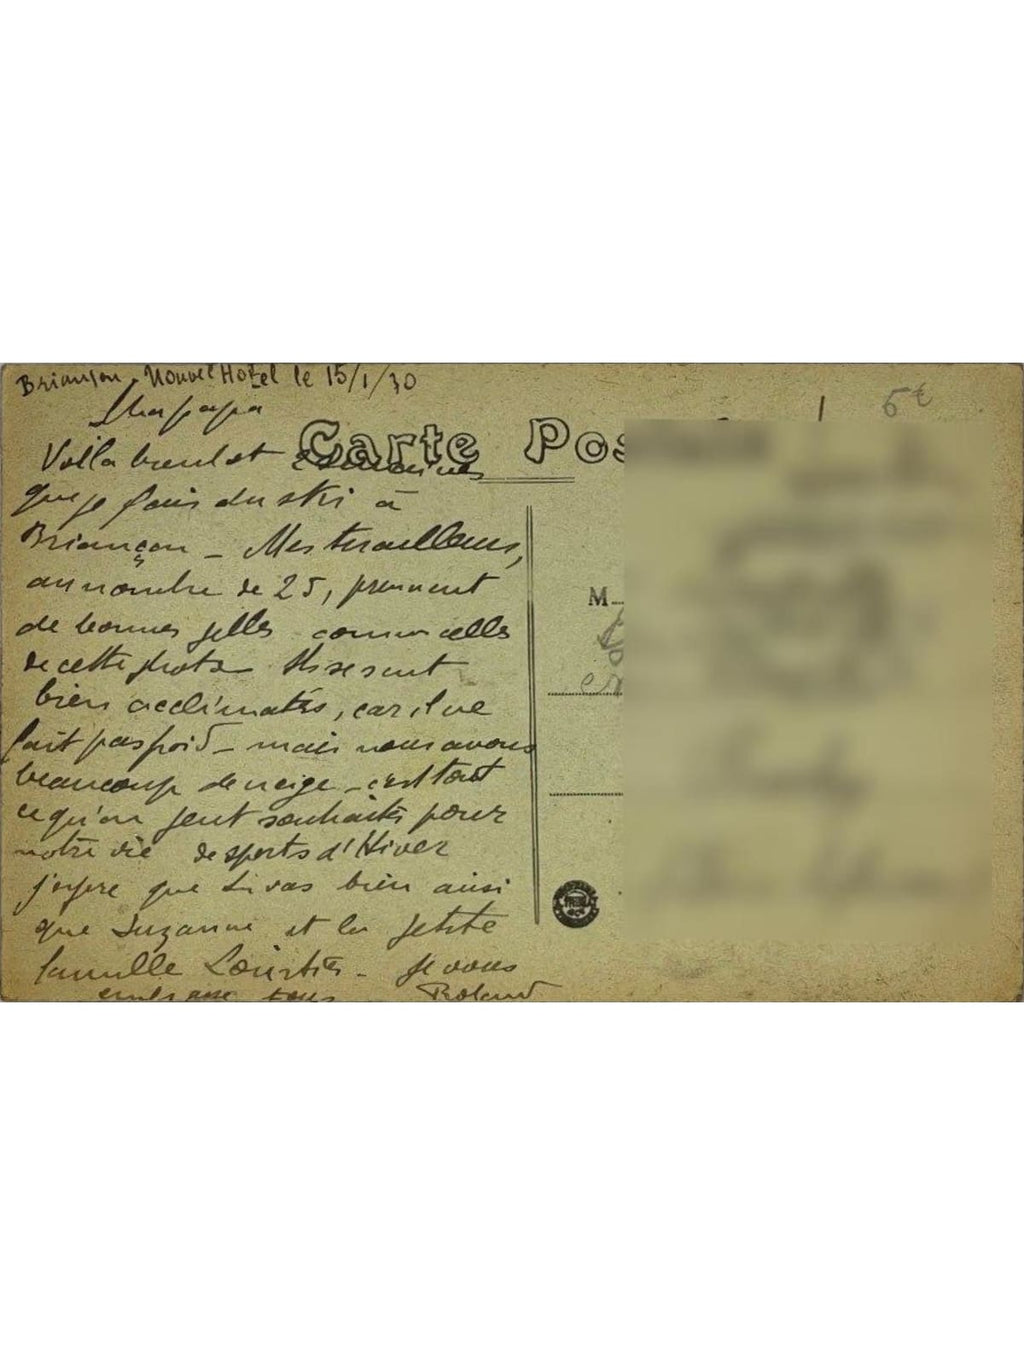 Briançon, Nouvel Hotel le 15/1/30
Cher papa
Carte Pos
Voila bientot semaines
que je fais du ski à
Briançon – Mes tirailleurs,
au nombre de 25, prennent
de bonnes pelles comme celles
de cette photo Ils se sont
bien acclimatés, car il ne
fait pas froid – mais nous avons
beaucoup de neige – c'est tout
ce qu'on peut souhaiter pour
notre vie de sports d'Hiver
J'espère que tu vas bien ainsi
que Suzanne et la petite
famille – Je vous
embrasse tous Roland
M
5€